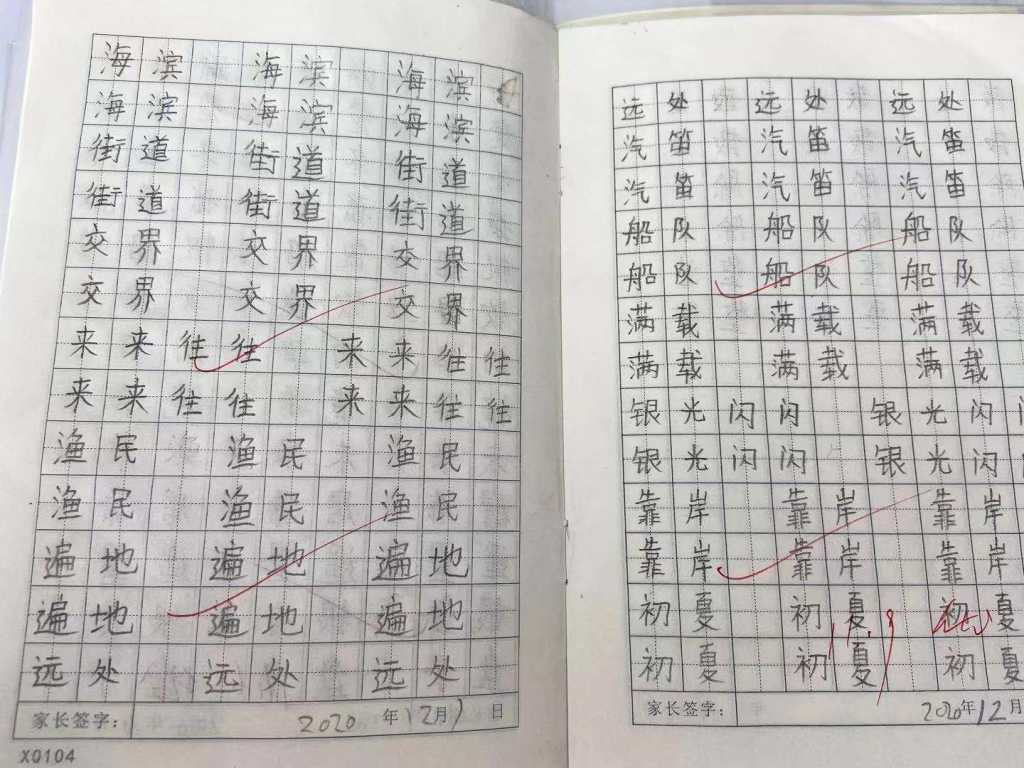 海滨 海滨 海滨
海滨 海滨 海滨
街道 街道 街道
街道 街道 街道
交界 交界 交界
交界 交界 交界
来来往往 来来往往
来来往往 来来往往
渔民 渔民 渔民
渔民 渔民 渔民
遍地 遍地 遍地
遍地 遍地 遍地
远处 远处 远处
家长签字： 2020 年 12月 1 日
X0104
远处 远处 远处
汽笛 汽笛 汽笛
汽笛 汽笛 汽笛
船队 船队 船队
船队 船队 船队
满载 满载 满载
满载 满载 满载
银光闪闪 银光闪
银光闪闪 银光闪
靠岸 靠岸 靠岸
靠岸 靠岸 靠岸
初夏 初夏 初夏
初夏 初夏 初夏
家长签字： 2020年12月